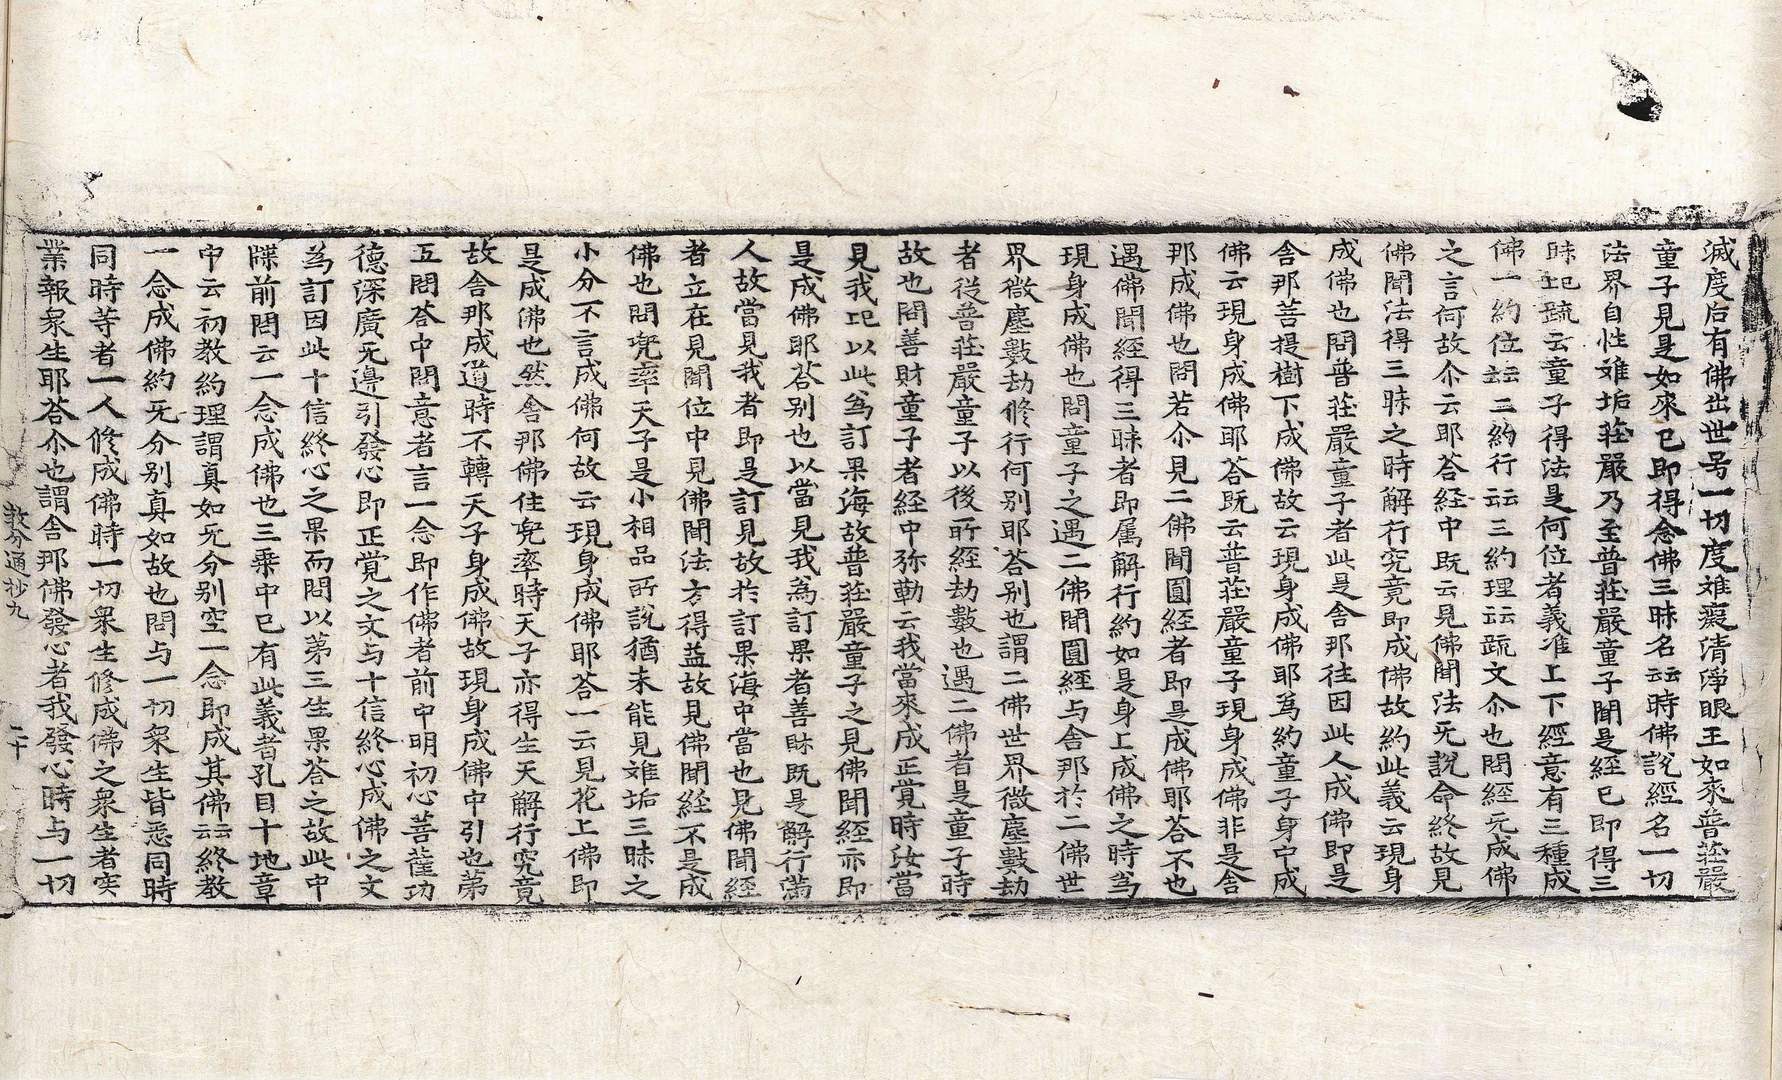 滅度后有佛出世号一切度难癡清淨眼王如來普莊嚴
童子見是如來已即得念佛三昧名云云時佛說經名一切
法界自性难垢莊嚴乃至普莊嚴童子聞是經已即得三
昧云云疏云童子得法是何位者義准上下經意有三種成
佛一約位云云二約行云云三約理云云疏文尒也問經元成佛
之言何故尒云耶荅經中旣云見佛聞法旡說命終故見
佛聞法得三昧之時解行究竟即成佛故約此義云現身
成佛也問普莊嚴童子者此是舍那往因此人成佛即是
舍那菩提樹下成佛故云現身成佛耶爲約童子身中成
佛云現身成佛耶荅旣云普莊嚴童子現身成佛非是舍
那成佛也問若尒見二佛聞圓經者即是成佛耶荅不也
遇佛聞經得三昧者即属解行約如是身上成佛之時爲
現身成佛也問童子之遇二佛聞圓經与舍那於二佛世
界微塵數劫修行何别耶荅别也謂二佛世界微塵數劫
者從普莊嚴童子以後所經劫數也遇二佛者是童子時
故也問善財童子者經中弥勤云我當來成正覺時汝當
見我云云以此爲訂果海故普莊嚴童子之見佛聞經亦即
是成佛耶荅别也以當見我爲訂果者善財旣是解行滿
人故當見我者即是訂見故於訂果海中當也見佛聞經
者立在見聞位中見佛聞法方得益故見佛聞經不是成
佛也問兜率天子是小相品所說猶未能見难垢三昧之
小分不言成佛何故云現身成佛耶荅一云見花上佛即
是成佛也然舍那佛住兜率時天子亦得生天解行究竟
故舍那成道時不轉天子身成佛故現身成佛中引也第
五問荅中問意者言一念即作佛者前中明初心菩薩功
德深廣旡邊引發心即正覺之文与十信終心成佛之文
爲訂因此十信終心之果而問以第三生果荅之故此中
牒前問云一念成佛也三乗中已有此義者孔目十地章
中云初教約理謂真如旡分别空一念即成其佛云云終教
一念成佛約旡分别真如故也問与一切衆生皆悉同時
同時等者一人修成佛時一切衆生修成佛之衆生者实
業報衆生耶荅尒也謂舍那佛發心者我發心時与一切
教分通抄九　二十